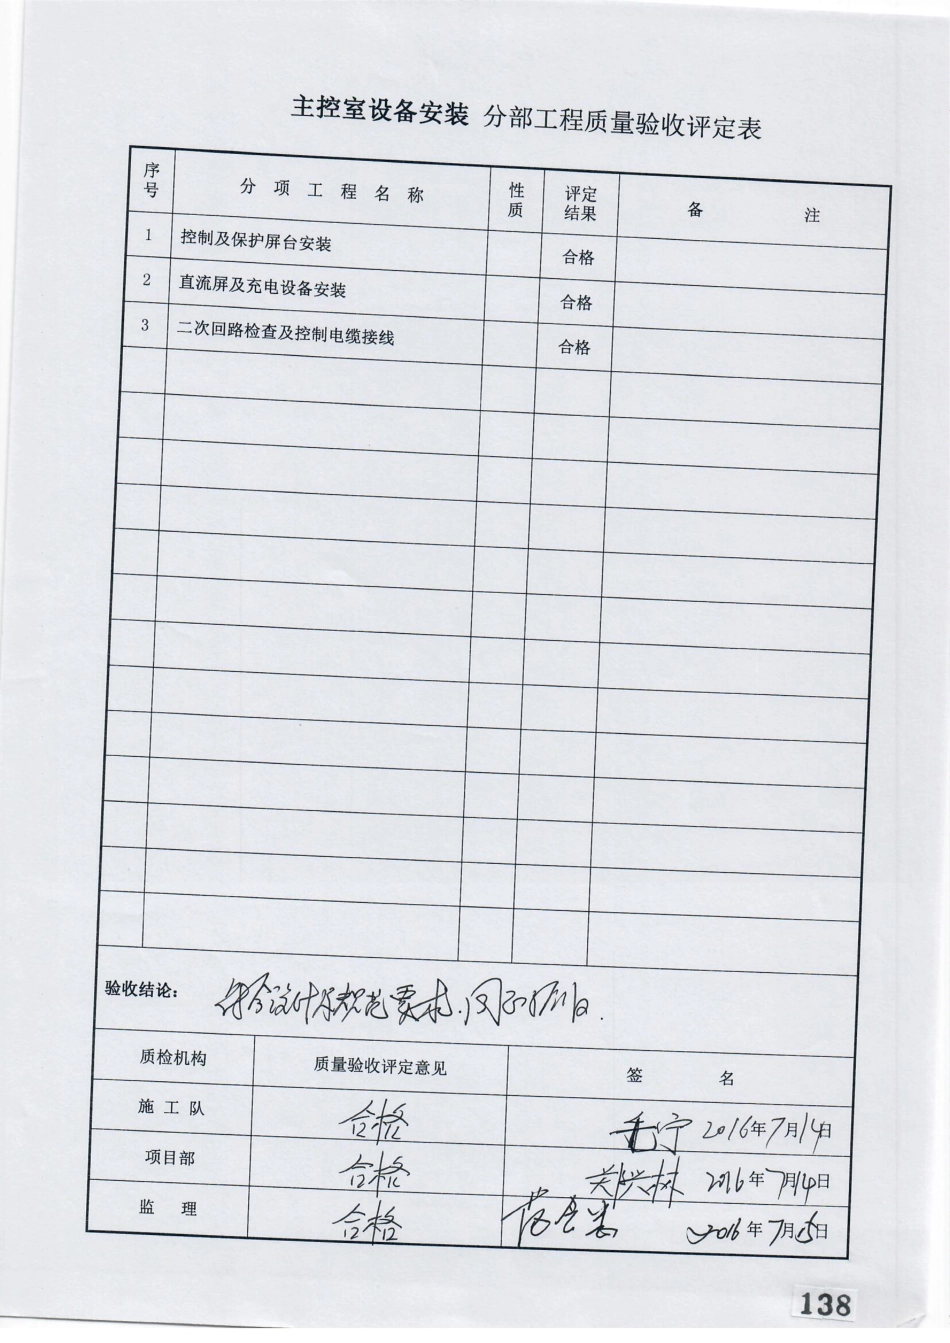 主控室设备安装 分部工程质量验收评定表
序号 分项工程名称 性质 评定结果 备注
1 控制及保护屏台安装 合格
2 直流屏及充电设备安装 合格
3 二次回路检查及控制电缆接线 合格
验收结论: 符合设计及规范要求.同意验收.
质检机构 质量验收评定意见 签名
施工队 合格 毛宁 2016年7月14日
项目部 合格 郑兴林 2016年7月14日
监理 合格 2016年7月15日
138